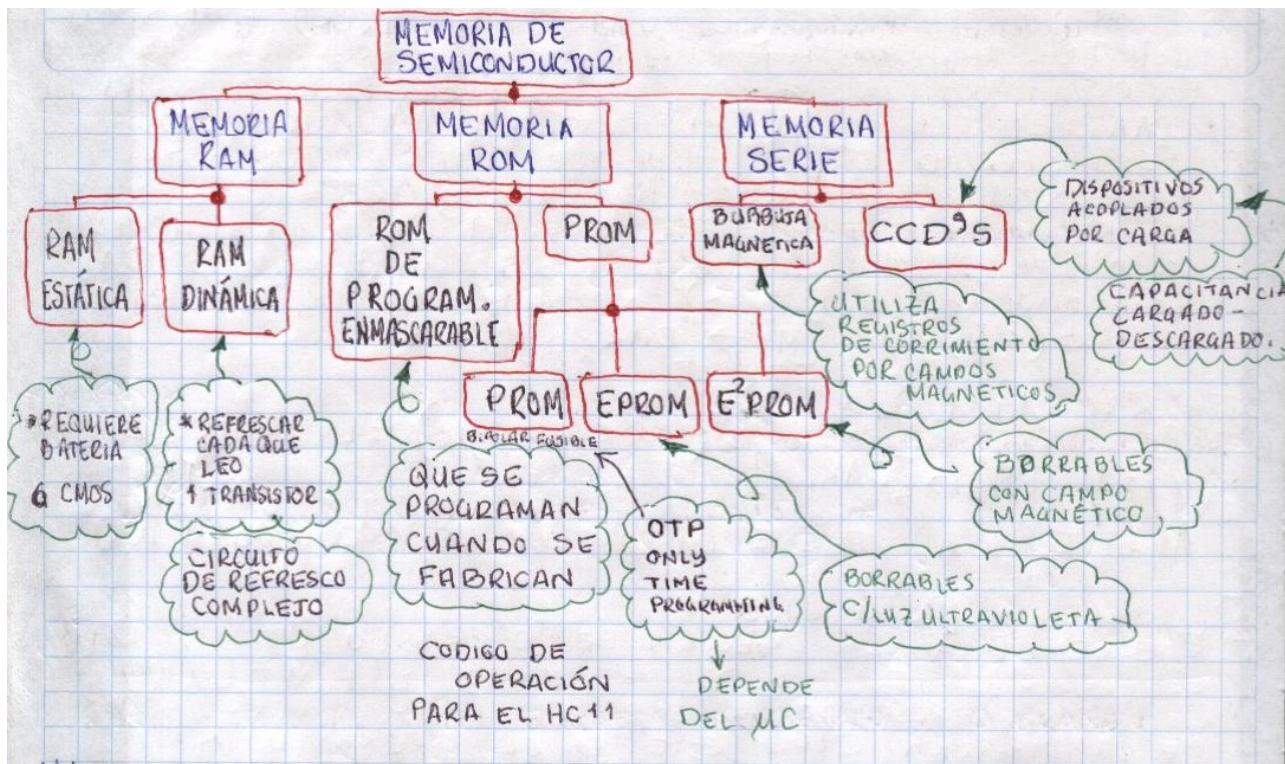 MEMORIA DE
SEMICONDUCTOR
MEMORIA
RAM
MEMORIA
ROM
MEMORIA
SERIE
RAM
ESTÁTICA
RAM
DINÁMICA
ROM
DE
PROGRAM.
ENMASCARABLE
PROM
BURBUJA
MAGNETICA
CCD'S
DISPOSITIVOS
ACOPLADOS
POR CARGA
CAPACITANCIA
CARGADO-
DESCARGADO.
UTILIZA
REGISTROS
DE CORRIMIENTO
POR CAMPOS
MAGNETICOS
PROM
BIPOLAR FUSIBLE
EPROM
E²PROM
*REQUIERE
BATERIA
6 CMOS
*REFRESCAR
CADA QUE
LEO
1 TRANSISTOR
CIRCUITO
DE REFRESCO
COMPLEJO
QUE SE
PROGRAMAN
CUANDO SE
FABRICAN
OTP
ONLY
TIME
PROGRAMMING
BORRABLES
CON CAMPO
MAGNÉTICO
BORRABLES
C/LUZ ULTRAVIOLETA
CODIGO DE
OPERACIÓN
PARA EL HC11
DEPENDE
DEL μC